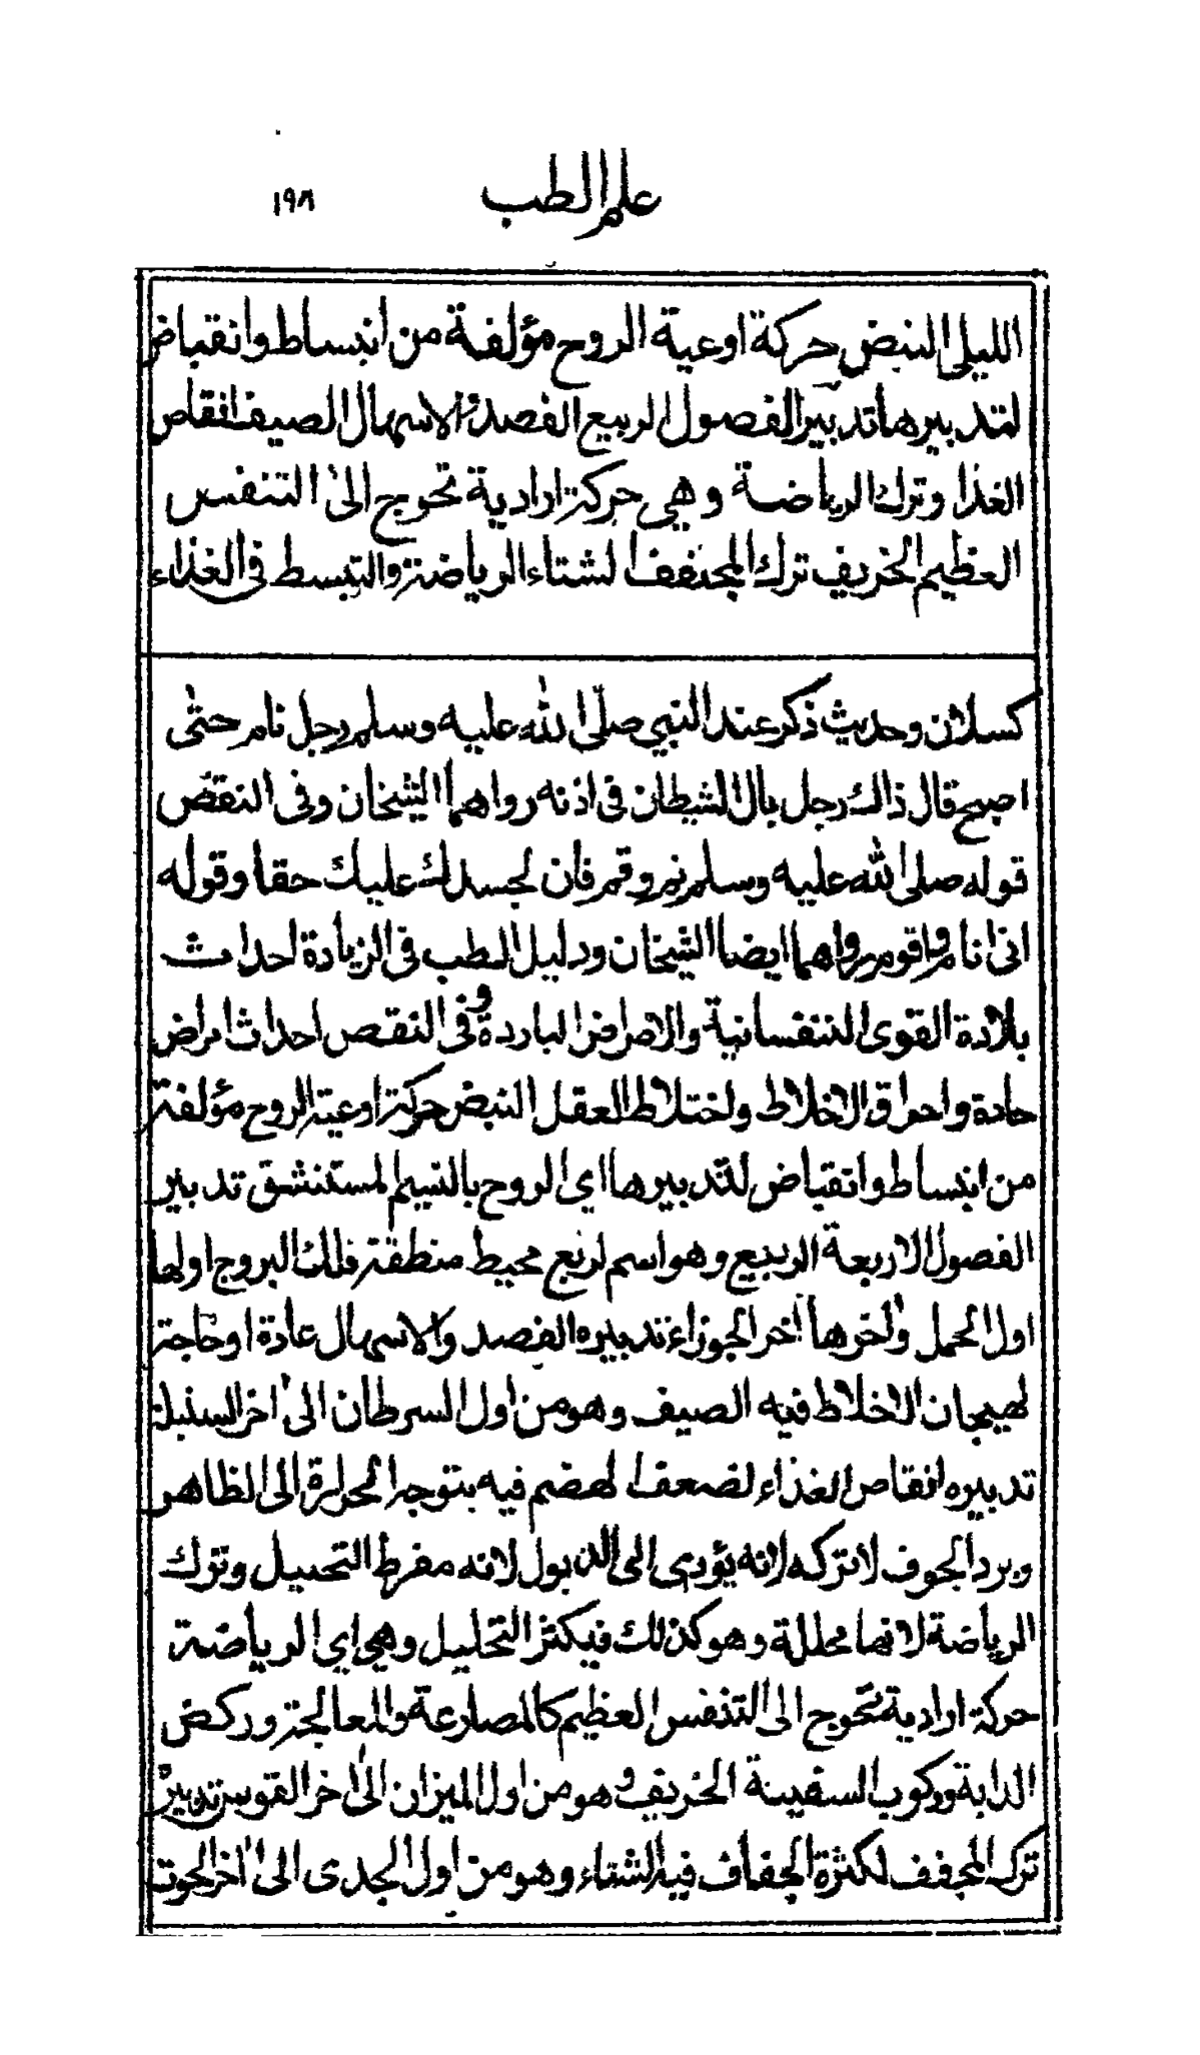 علم الطب ١٩٨
الليلى النبض حركة اوعية الروح مؤلفة من انبساط وانقباض
لتدبيرها تدبير الفصول الربيع الفصد والاسهال الصيف انقاص
الغذا وترك الرياضة وهي حركة ارادية تحوج الى التنفس
العظيم الخريف ترك المجفف الشتاء الرياضة والتبسط فى الغذاء
كسلان وحديث ذكر عند النبي صلى الله عليه وسلم رجل نام حتى
اصبح قال ذاك رجل بال الشيطان فى اذنه رواهما الشيخان وفى النقص
قوله صلى الله عليه وسلم نم وقم فان لجسدك عليك حقا وقوله
انى انام واقوم رواهما ايضا الشيخان ودليل الطب فى الزيادة احداث
بلادة القوى النفسانية والامراض الباردة وفى النقص احداث امراض
حادة واحراق الاخلاط واختلاط العقل النبض حركة اوعية الروح مؤلفة
من انبساط وانقباض لتدبيرها اى الروح بالنسيم المستنشق تدبير
الفصول الاربعة الربيع وهو اسم لربع محيط منطقة فلك البروج اولها
اول الحمل واخرها اخر الجوزاء تدبيره الفصد والاسهال عادة او حاجة
لهيجان الاخلاط فيه الصيف وهو من اول السرطان الى اخر السنبلة
تدبيره انقاص الغذاء لضعف الهضم فيه بتوجه الحرارة الى الظاهر
وبرد الجوف لا تركه لانه يؤدى الى الذبول لانه مفرط التحليل وترك
الرياضة لانها محللة وهو كذلك فيكثر التحليل وهي اي الرياضة
حركة ارادية تحوج الى التنفس العظيم كالمصارعة والمعالجة وركض
الدابة وركوب السفينة الخريف وهو من اول الميزان الى اخر القوس تدبيره
ترك المجفف لكثرة الجفاف فيه الشتاء وهو من اول الجدى الى اخر الحوت